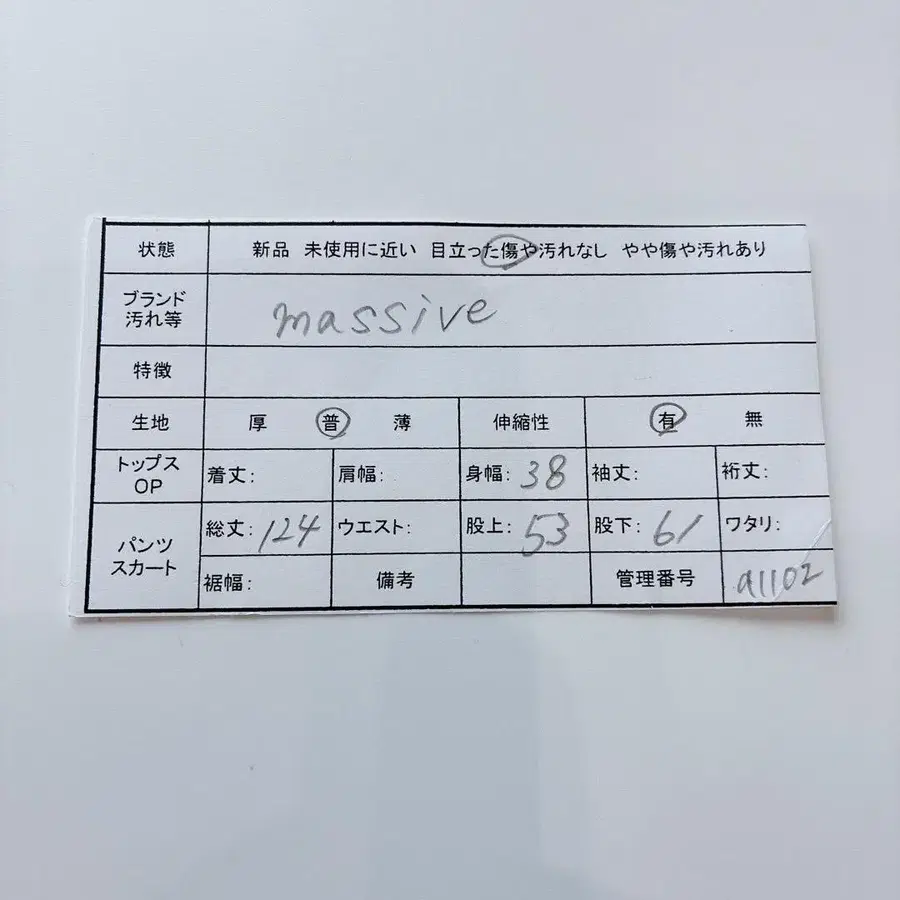 状態 新品 未使用に近い 目立った傷や汚れなし やや傷や汚れあり
ブランド
汚れ等
massive
特徴
生地 厚 普 薄 伸縮性 有 無
トップス
OP
着丈: 肩幅: 身幅: 38 袖丈: 裄丈:
パンツ
スカート
総丈: 124 ウエスト: 股上: 53 股下: 61 ワタリ:
裾幅: 備考 管理番号 a1102